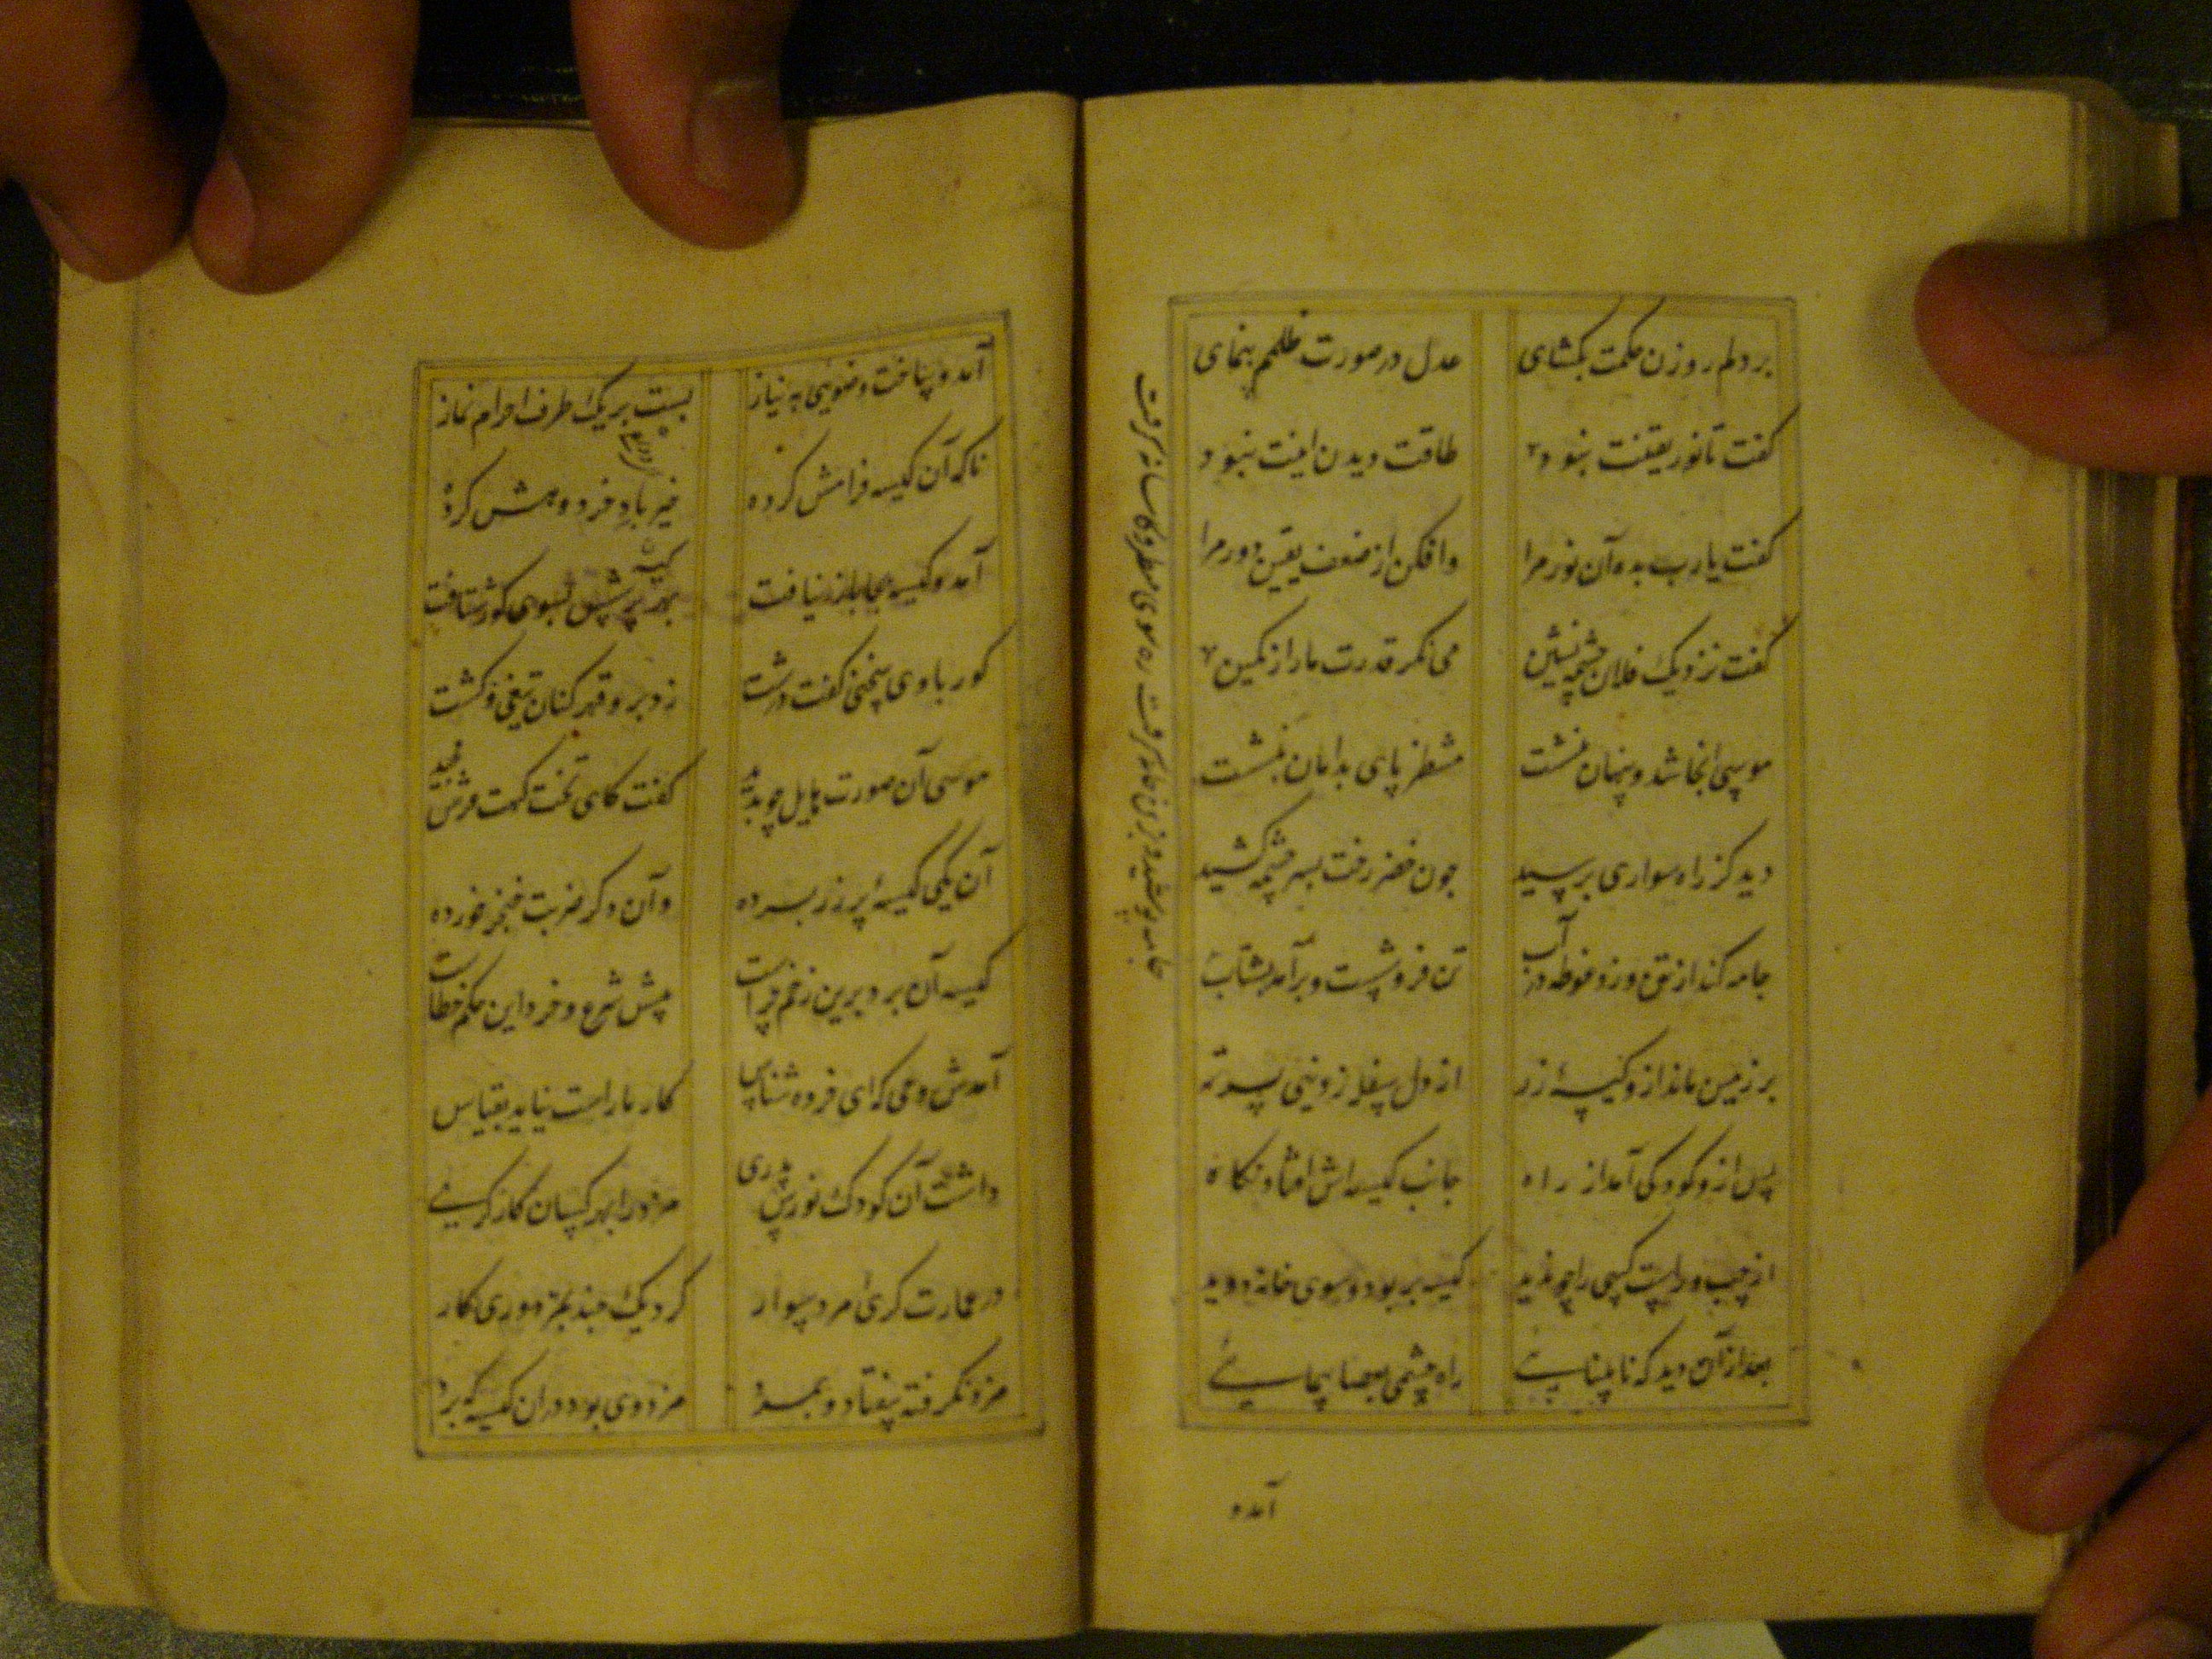 بر دلم روزن حکمت بکشای عدل در صورت ظلمم بنمای
کفت تا نور یقینت نبود طاقت دیدن اینت نبود
کفت یارب بده آن نور مرا وافکن از ضعف یقین دور مرا
کفت نزدیک فلان چشمه نشین می نکر قدرت ما را ز کمین
موسی آنجا شد و پنهان بنشست منتظر پای بدامان بنشست
دید کز راه سواری برسید چون خضر رخت بسر چشمه کشید
جامه کند از تن و زد غوطه در آب تن فرو شست و برآمد بشتاب
بر زمین ماند ازو کیسه زر
پس ازو کودکی آمد از راه جانب کیسه اش افتاد نکاه
از چپ و راست کسی را چو ندید کیسه بربود و سوی خانه دوید
بعد از آن دید که نابیناییست راه چشمی بعصا پیماییست
آمد و
جامه پوشید و بزی خانه کرفت
آمد و ساخت وضویی به نیاز بست بر یک طرف احرام نماز
ناکه آن کیسه فرامش کرده خیرباد خرد و هش کرده
آمد و کیسه بجا باز نیافت بهر پرسش بسوی کور شتافت
کور با وی سخنی کفت درشت زد برو قهرکنان تیغی و کشت
موسی آن صورت هایل چو بدید کفت کای تخت کهت عرش مجید
آن یکی کیسه پر زر برده وآن دکر ضربت خنجر خورده
کیسه آن برد برین زخم چراست پیش شرع و خرد این حکم خطاست
آمدش وحی که ای خرده شناس کار ما راست نیاید بقیاس
داشت آن کودک نورس پدری مزدور را بهر کسان کارکری
در عمارت کری مرد سوار کرد یک چند بمزدوری کار
مزد نکرفته بیفتاد و بمرد مزد وی بود در آن کیسه که برد